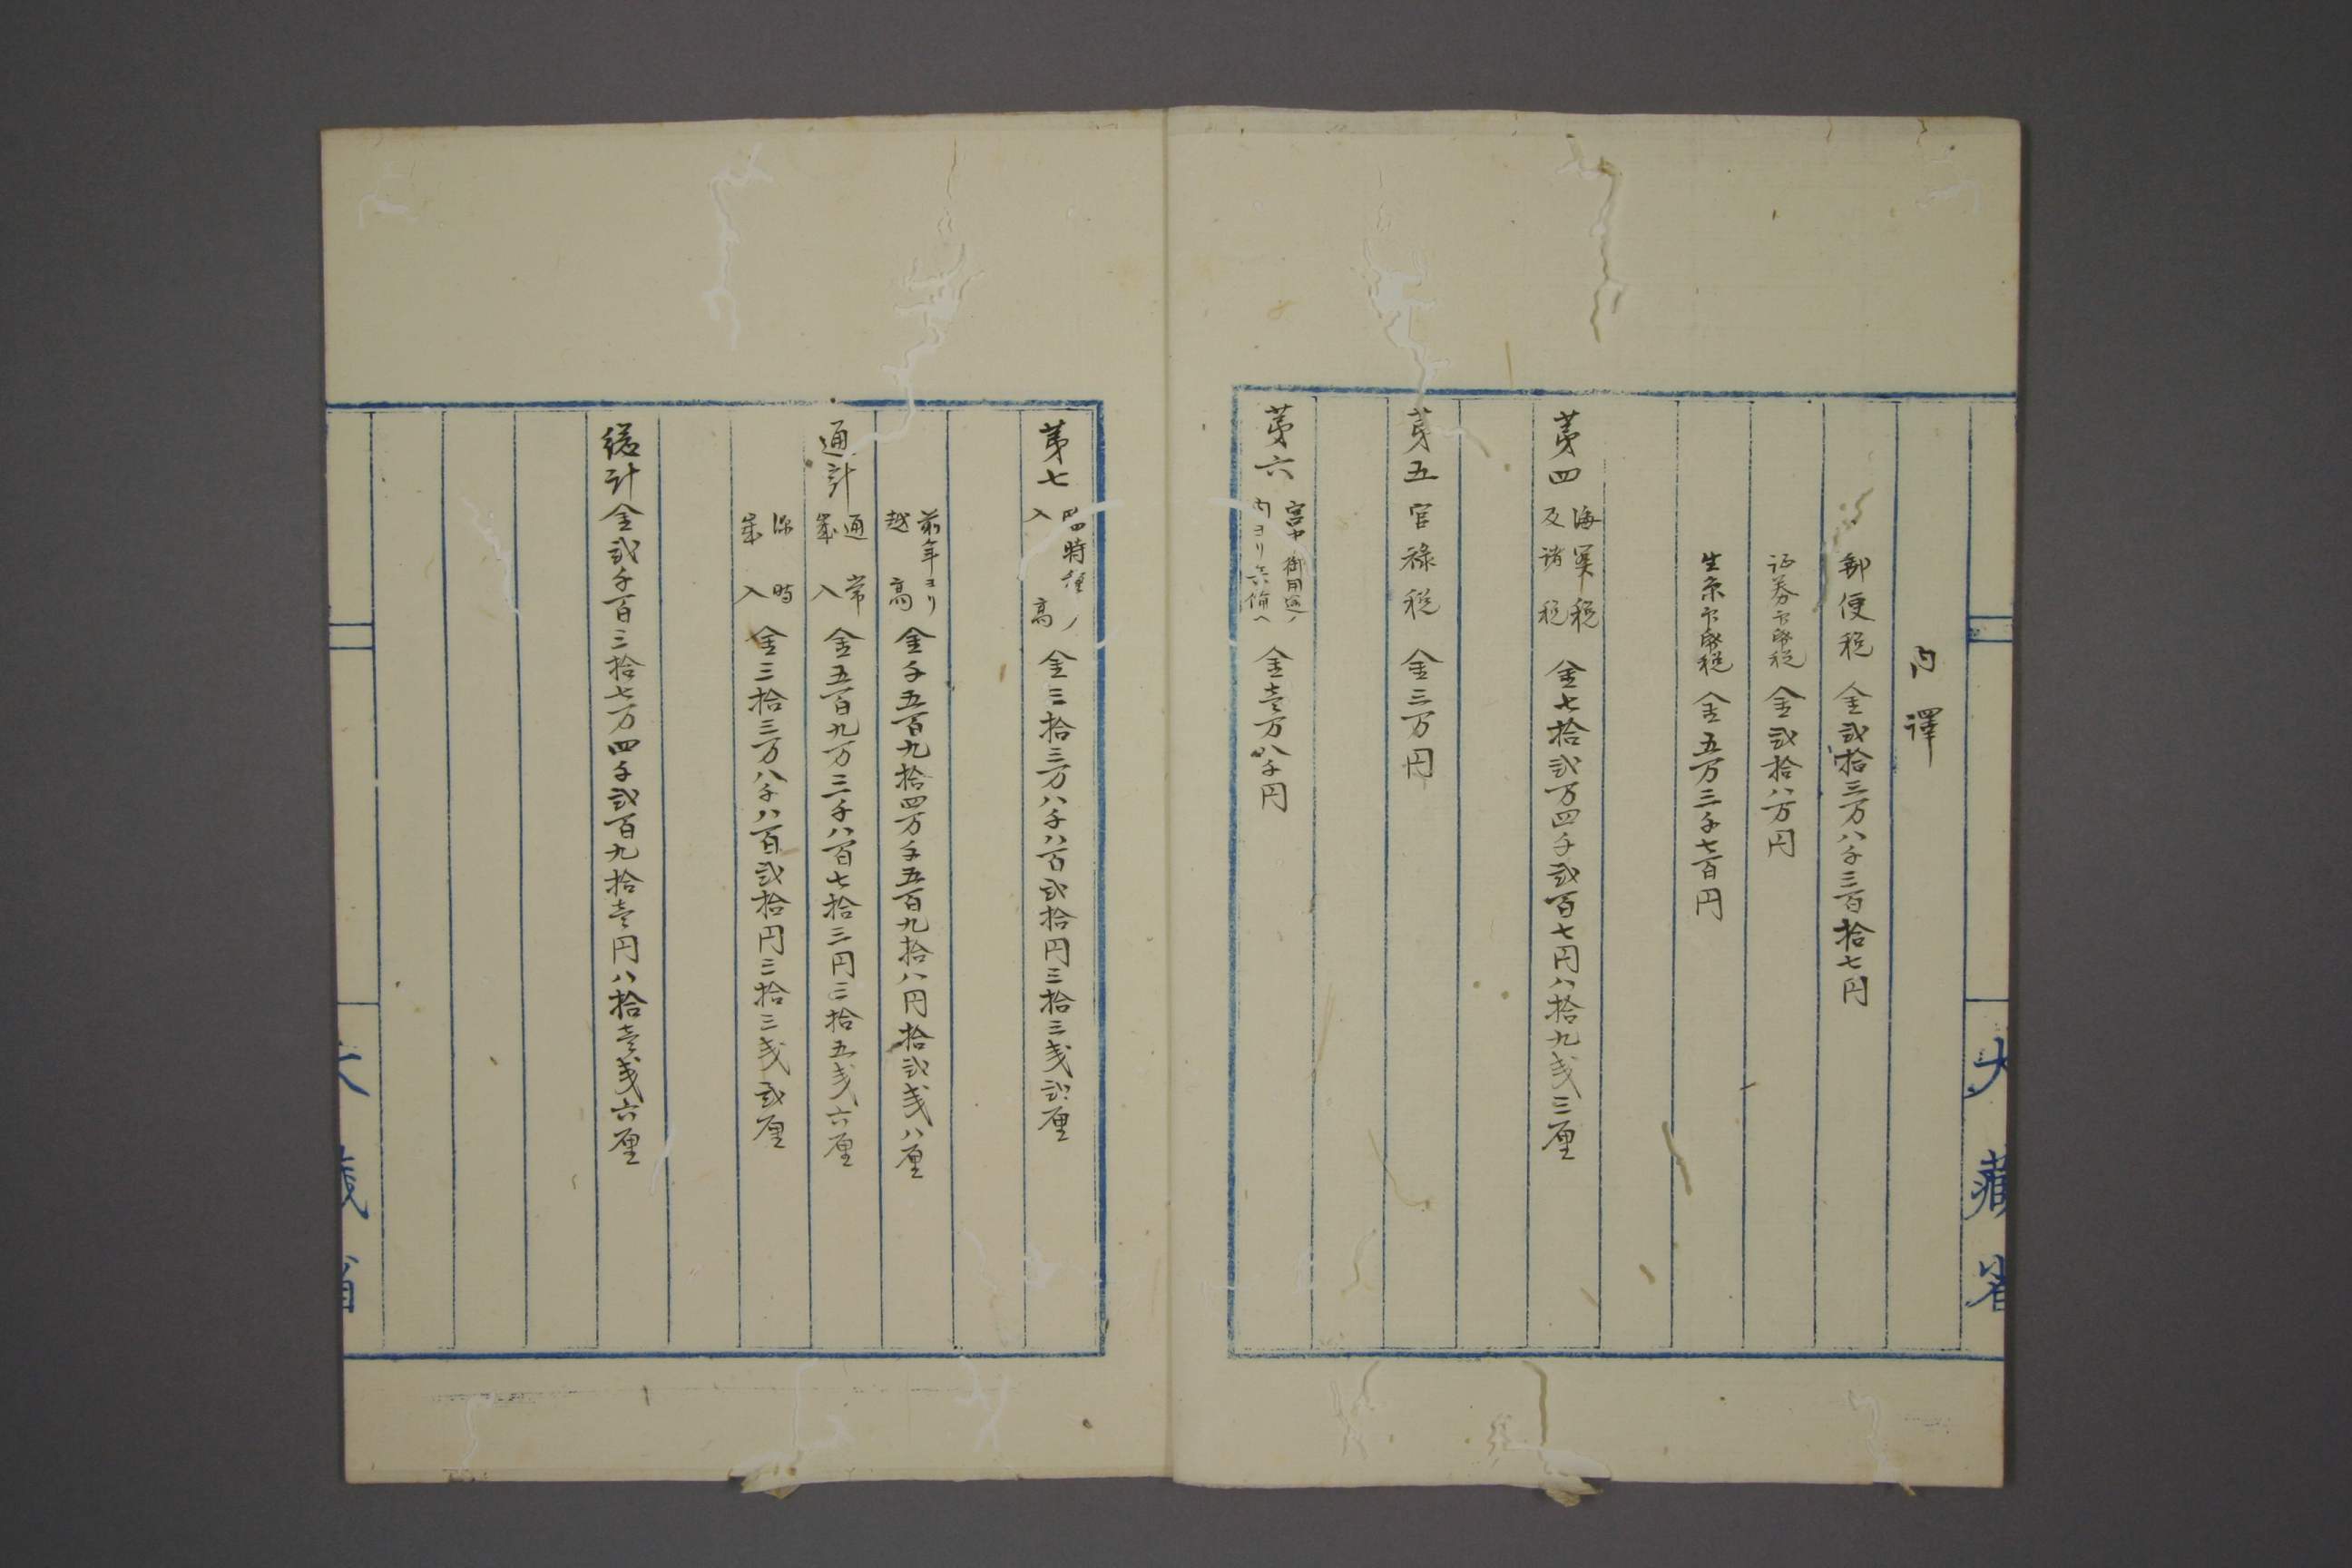 内譯
郵便税 金弐拾三万八千三百拾七円
証券印帋税 金弐拾八万円
生糸印帋税 金五万三千七百円
第四 海関税及諸税 金七拾弐万四千弐百七円八拾九戋三厘
第五 官禄税 金三万円
第六 宮中御用途ノ内ヨリ六備ヘ 金壱万八千円
第七 臨時種ノ入高 金三拾三万八千八百弐拾円三拾三戋弐厘
前年ヨリ越高 金千五百九拾四万千五百九拾八円拾弐戋八厘
通計 通常歳入 金五百九万三千八百七拾三円三拾五戋六厘
臨時歳入 金三拾三万八千八百弐拾円三拾三戋弐厘
総計金弐千百三拾七万四千弐百九拾壱円八拾壱戋六厘
大藏省